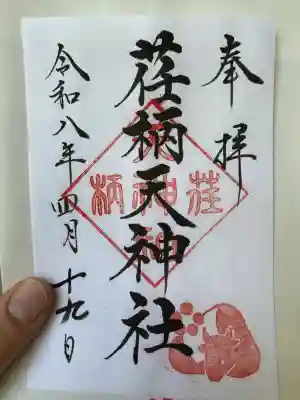 奉拝
荏柄天神社
令和八年四月十九日